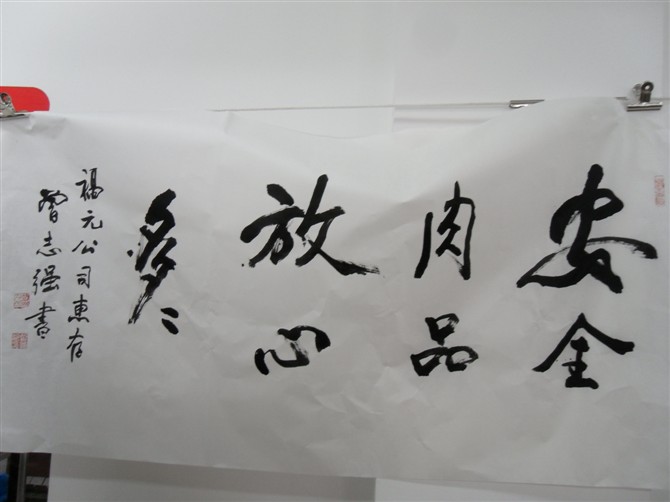 安全
肉品
放心
多〻
福元公司惠存
曾志强書